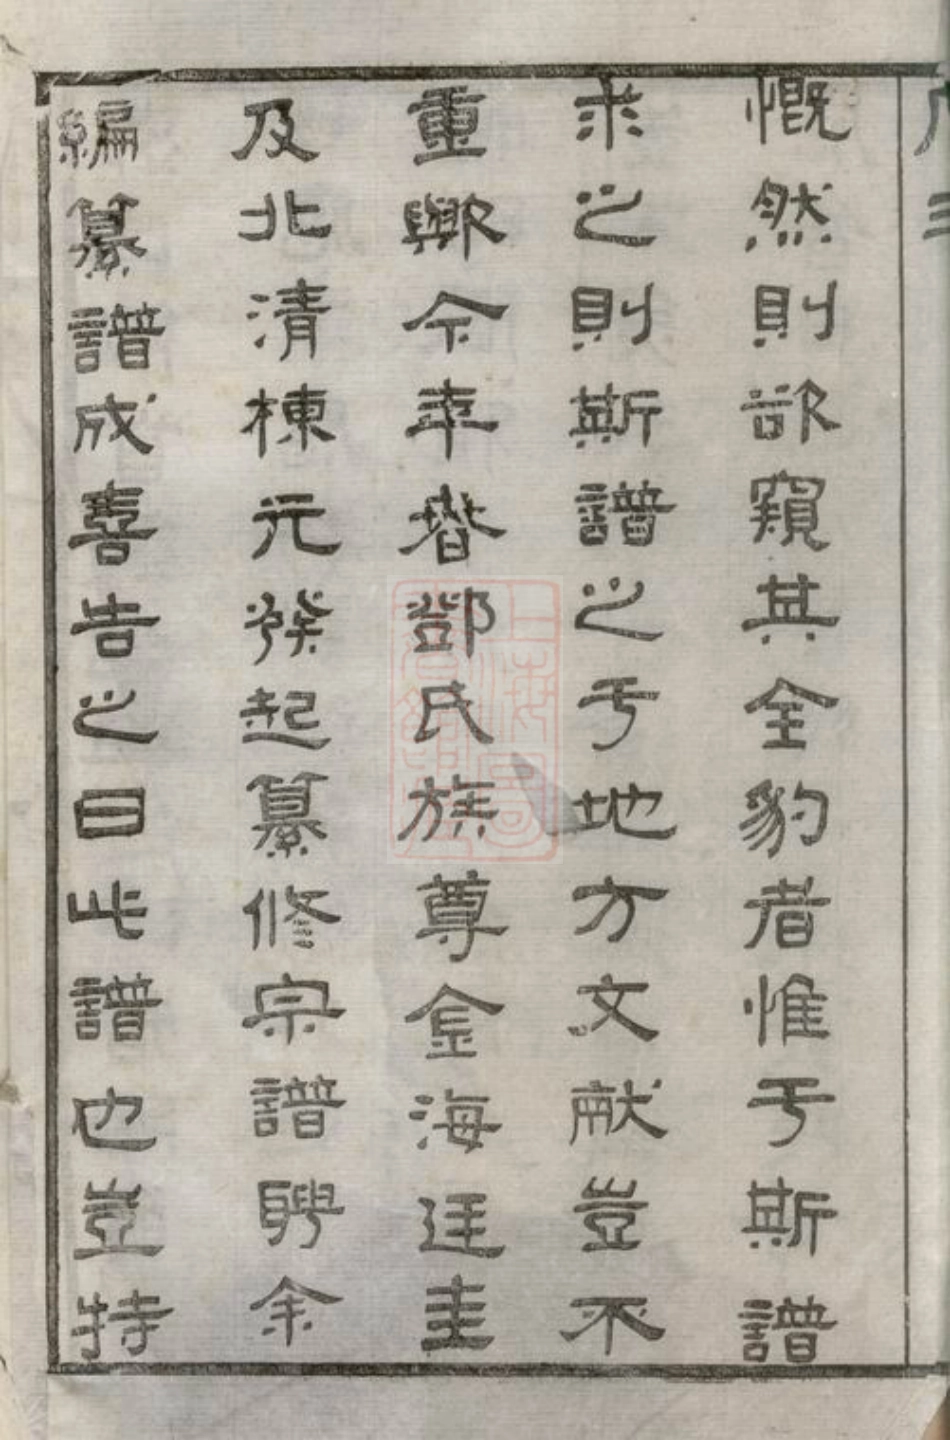 慨然則欲窺其全豹者惟于斯譜
求之則斯譜之于地方文献豈不
重歟今年春鄧氏族尊金海廷圭
及北清棟元發起纂修宗譜聘余
編纂譜成喜告之曰此譜也豈特